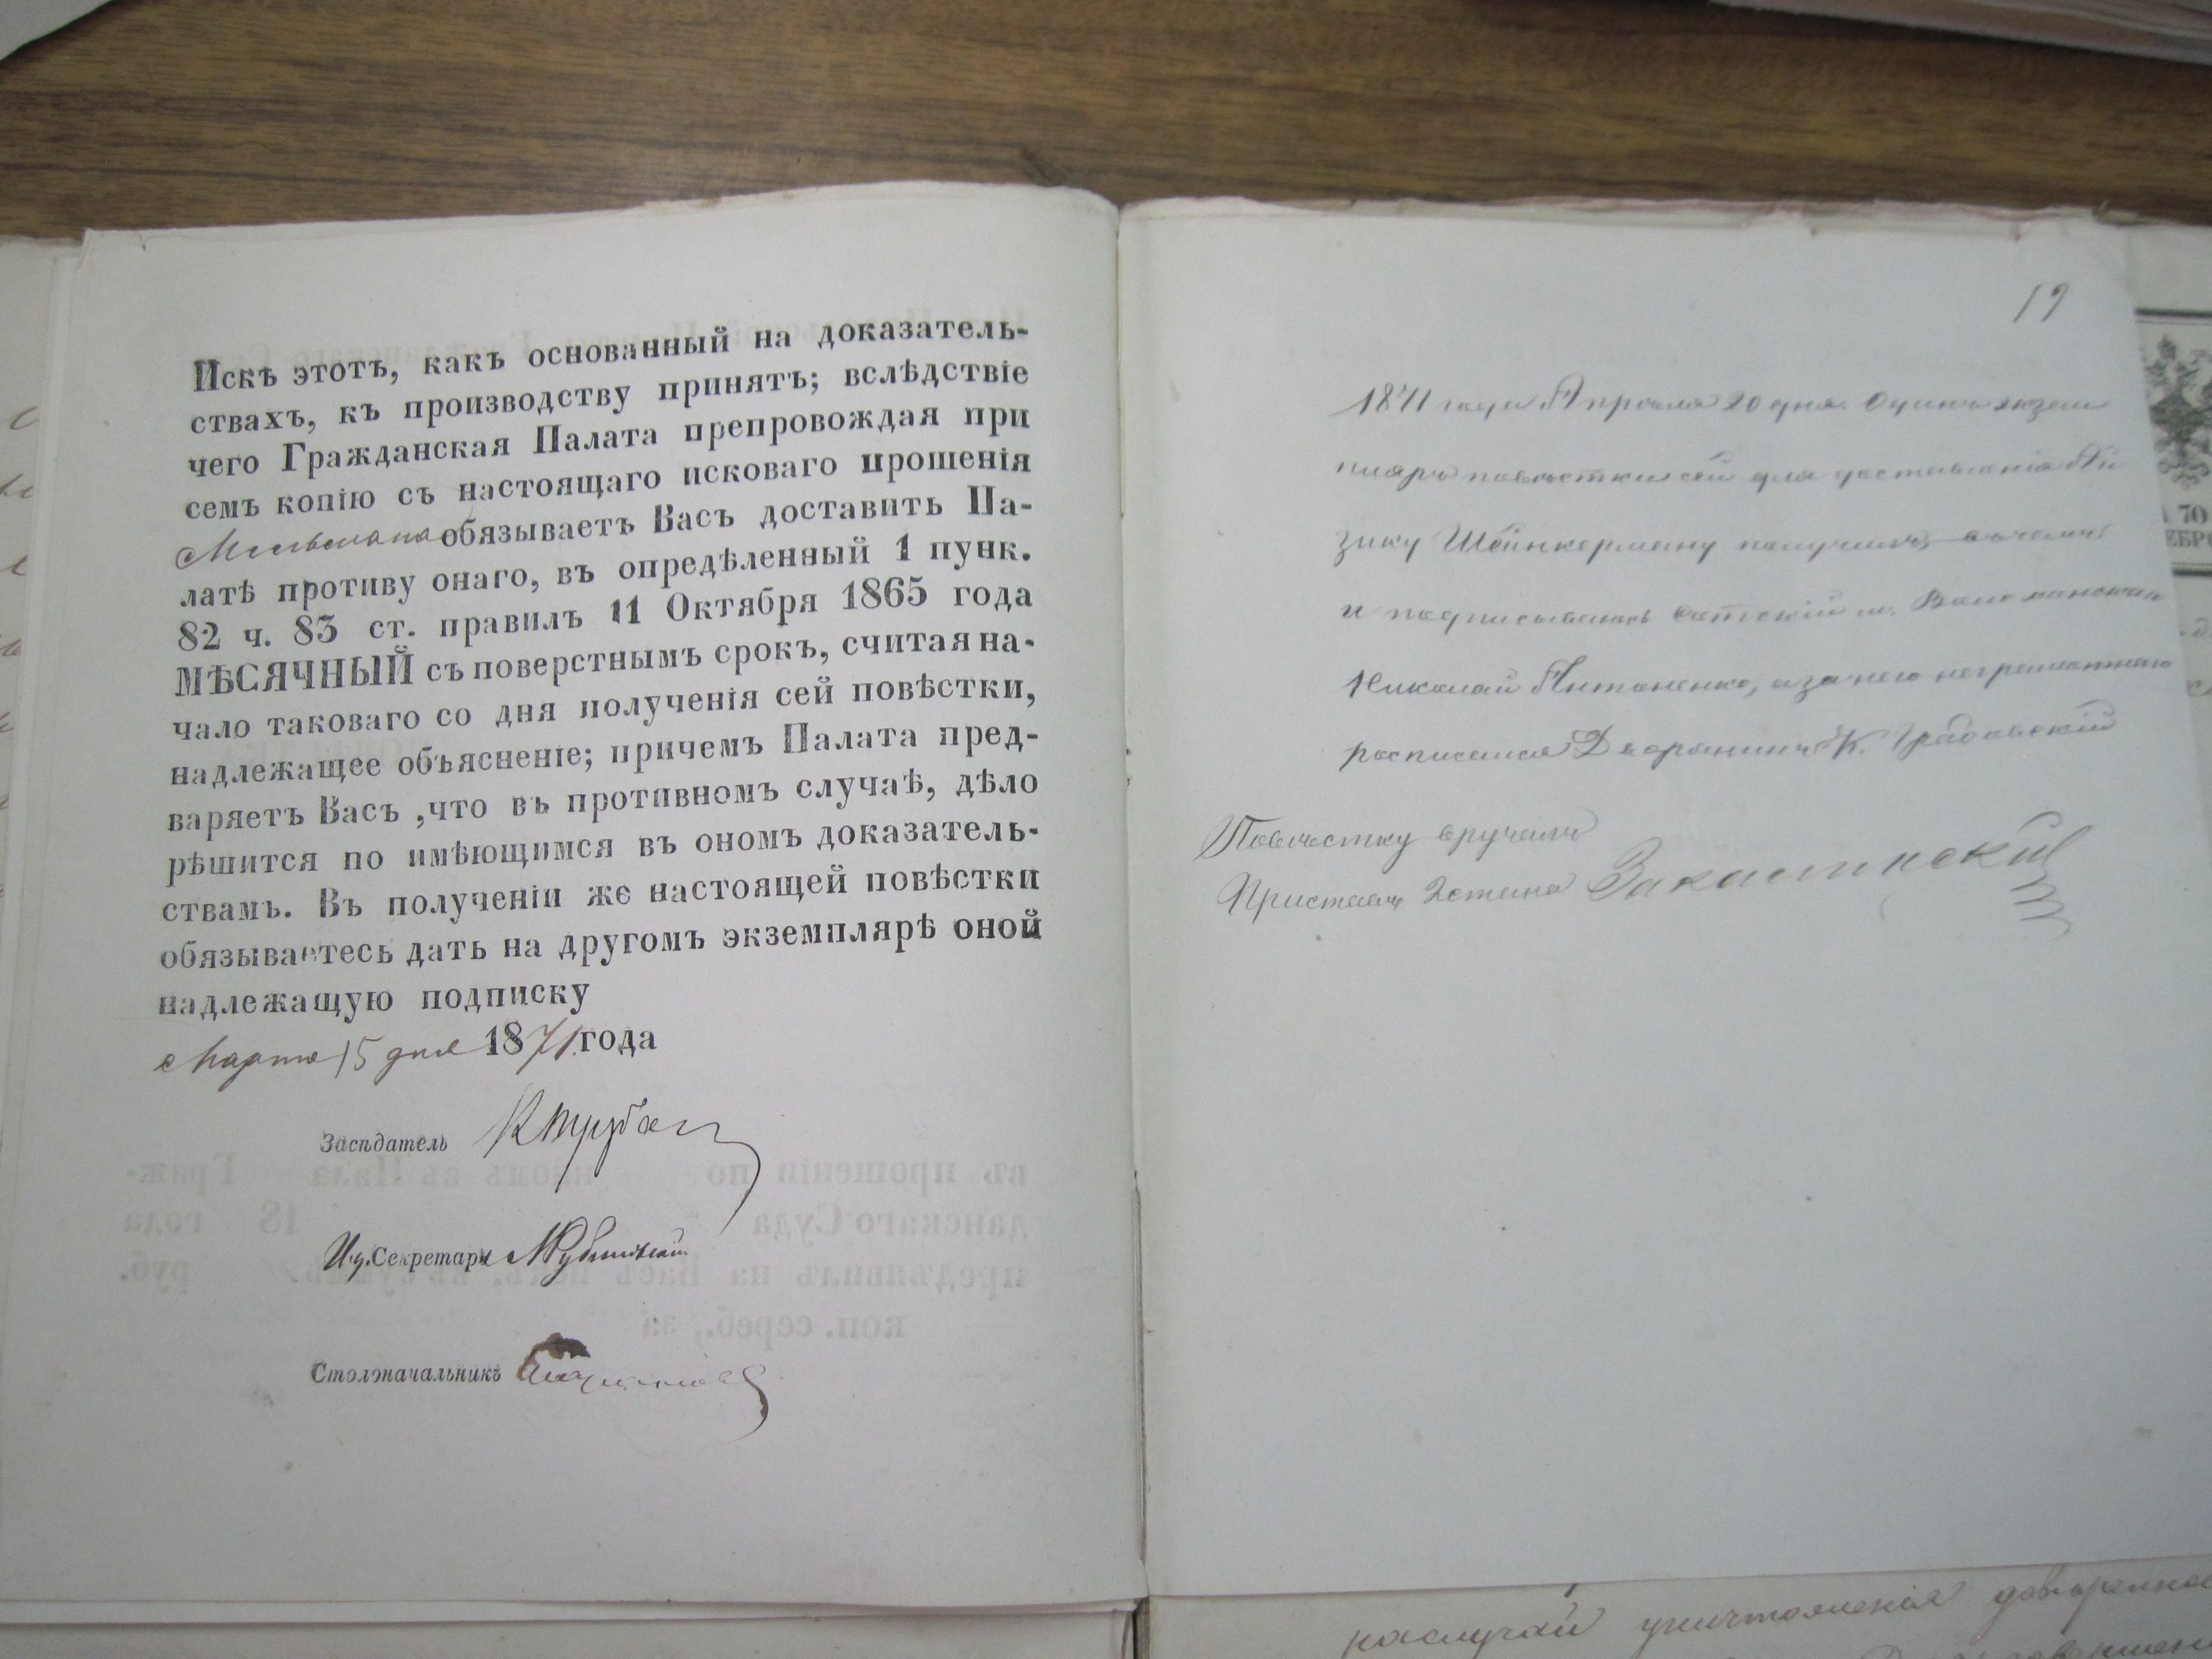 Искъ этотъ, какъ основанный на доказатель-
ствахъ, къ производству принятъ; вслѣдствіе
чего Гражданская Палата препровождая при
семъ копію съ настоящаго исковаго прошенія
обязываетъ Васъ доставить Па-
латѣ противу онаго, въ опредѣленный 1 пунк.
82 ч. 83 ст. правилъ 11 Октября 1865 года
МѢСЯЧНЫЙ съ поверстнымъ срокъ, считая на-
чало таковаго со дня полученія сей повѣстки,
надлежащее объясненіе; причемъ Палата пред-
варяетъ Васъ ,что въ противномъ случаѣ, дѣло
рѣшится по имѣющимся въ ономъ доказатель-
ствамъ. Въ полученіи же настоящей повѣстки
обязываетесь дать на другомъ экземплярѣ оной
надлежащую подписку
Марта 15 дня 1871 года
Засѣдатель
И.д. Секретаръ
Столоначальникъ
19
1871 года Апрѣля 20 дня. Одинъ экзем
пляръ повѣстки сей для доставленія Ай
зику Шейнкерману получилъ, въ чемъ
и подписываюсь Сотскій м.
Николай Антоненко, а за него неграмотнаго
росписался Дворянинъ К. Грабовскій
Повѣстку вручилъ
Приставъ 2 стана
на случай уничтоженія
70